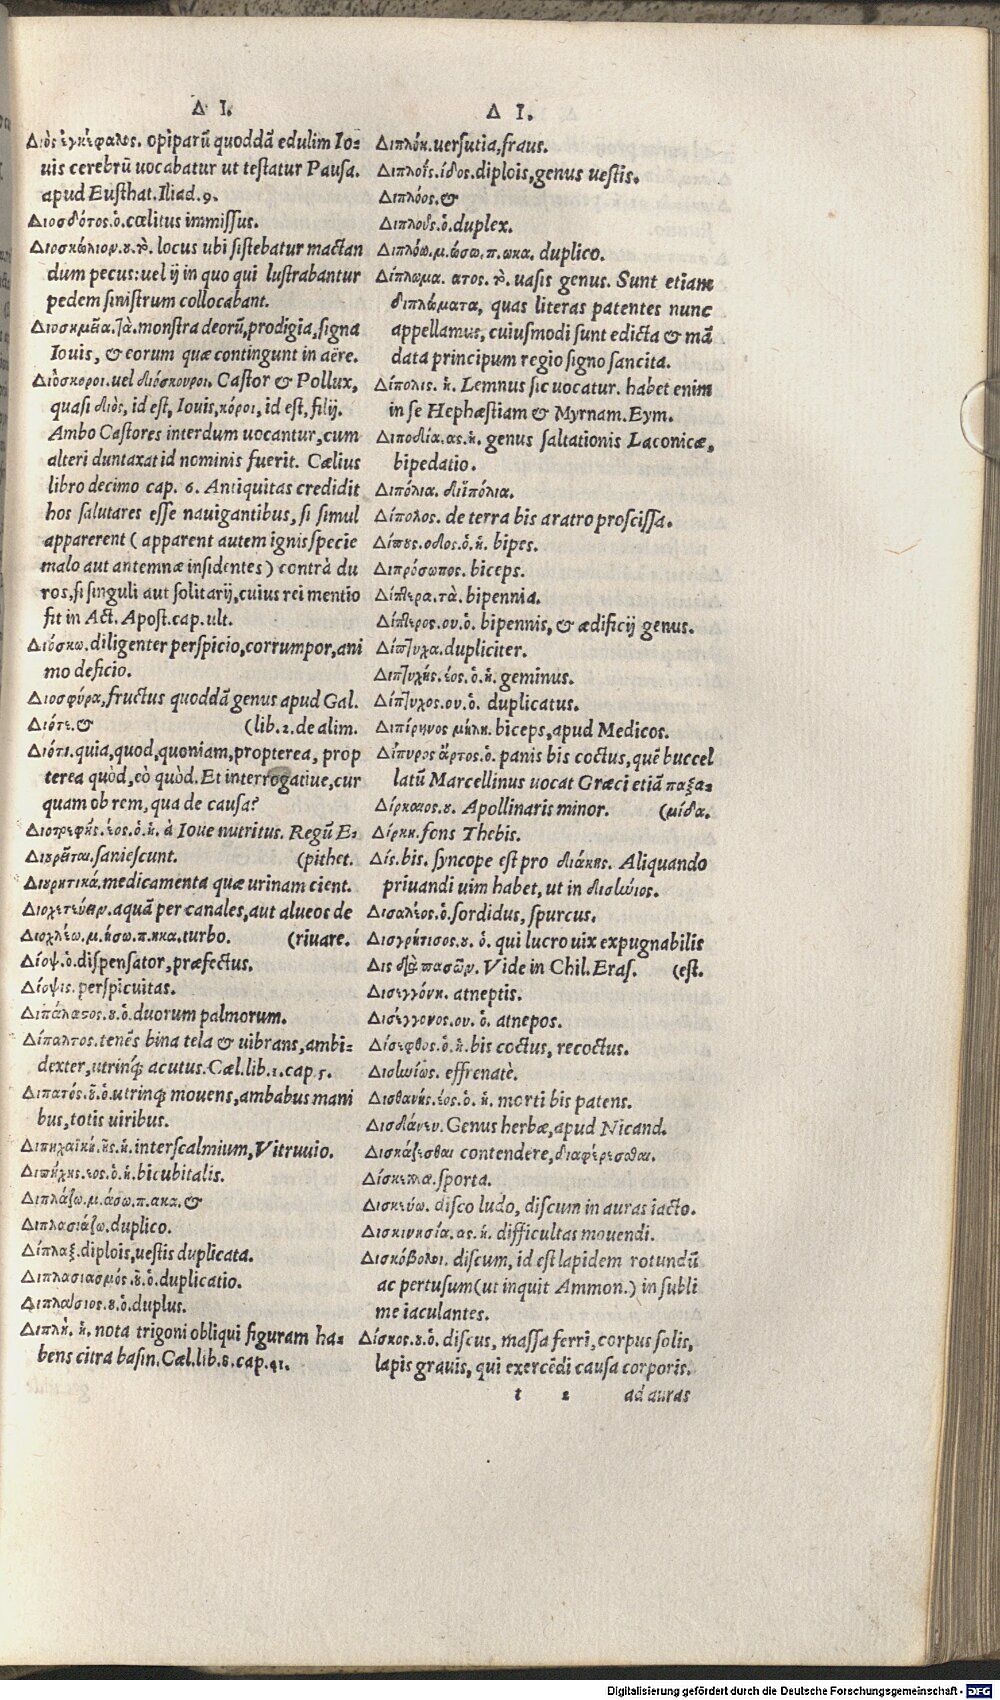 Δ Ι.
Διὸς ἐγκέφαλος. opiparũ quoddã edulim Io-
uis cerebrũ uocabatur ut testatur Pausa.
apud Eusthat. Iliad. 9.
Διοσδότος. ὁ. cœlitus immissus.
Διοσκώλιον. ου. τὸ. locus ubi sistebatur mactan
dum pecus: uel ij in quo qui lustrabantur
pedem sinistrum collocabant.
Διοσημεῖα. τὰ. monstra deorũ, prodigia, signa
Iouis, & eorum quæ contingunt in aëre.
Διόσκοροι. uel διόσκουροι. Castor & Pollux,
quasi διὸς, id est, Iouis, κόροι, id est, filij.
Ambo Castores interdum uocantur, cum
alteri duntaxat id nominis fuerit. Cælius
libro decimo cap. 6. Antiquitas credidit
hos salutares esse nauigantibus, si simul
apparerent ( apparent autem ignis specie
malo aut antemnæ insidentes ) contrà du
ros, si singuli aut solitarij, cuius rei mentio
fit in Act. Apost. cap. ult.
Διόσκω. diligenter perspicio, corrumpor, ani
mo deficio.
Διοσφύρα, fructus quoddã genus apud Gal.
Διότε. & (lib. 2. de alim.
Διότι. quia, quod, quoniam, propterea, prop
terea quòd, eò quòd. Et interrogatiue, cur
quam ob rem, qua de causa?
Διοτρεφής. έος. ὁ. ἡ. à Ioue nutritus. Regũ E-
Διουρεῖται. saniescunt. (pithet.
Διουρητικά. medicamenta quæ urinam cient.
Διοχετεύειν. aquã per canales, aut alueos de
Διοχλέω. μ. ήσω. π. ηκα. turbo. (riuare.
Δίοψ. ὁ. dispensator, præfectus.
Δίοψις. perspicuitas.
Διπάλαστος. ου. ὁ. duorum palmorum.
Δίπαλτος. tenẽs bina tela & uibrans, ambi-
dexter, utrinq; acutus. Cæl. lib. 1. cap. 5.
Διπατός. οῦ. ὁ. utrinq; mouens, ambabus mani
bus, totis uiribus.
Διπηχαϊκή. ῆς. ἡ. interscalmium, Vitruuio.
Διπήχης. εος. ὁ. ἡ. bicubitalis.
Διπλάζω. μ. άσω. π. ακα. &
Διπλασιάζω. duplico.
Δίπλαξ. diplois, uestis duplicata.
Διπλασιασμός. οῦ. ὁ. duplicatio.
Διπλάσιος. ου. ὁ. duplus.
Διπλῆ. ἡ. nota trigoni obliqui figuram ha-
bens citra basin. Cæl. lib. 8. cap. 41.
Δ Ι.
Διπλόη. uersutia, fraus.
Διπλοΐς. ίδος. diplois, genus uestis.
Διπλόος. &
Διπλοῦς. ὁ. duplex.
Διπλόω. μ. ώσω. π. ωκα. duplico.
Δίπλωμα. ατος. τὸ. uasis genus. Sunt etiam
διπλώματα, quas literas patentes nunc
appellamus, cuiusmodi sunt edicta & mã
data principum regio signo sancita.
Δίπολις. ἡ. Lemnus sic uocatur. habet enim
in se Hephæstiam & Myrnam. Eym.
Διποδία. ας. ἡ. genus saltationis Laconicæ,
bipedatio.
Διπόλια. διϊπόλια.
Δίπολος. de terra bis aratro proscissa.
Δίπους. οδος. ὁ. ἡ. bipes.
Διπρόσωπος. biceps.
Δίπτερα. τὰ. bipennia.
Δίπτερος. ου. ὁ. bipennis, & ædificij genus.
Δίπτυχα. dupliciter.
Διπτυχής. έος. ὁ. ἡ. geminus.
Δίπτυχος. ου. ὁ. duplicatus.
Διπύρηνος μήλη. biceps, apud Medicos.
Δίπυρος ἄρτος. ὁ. panis bis coctus, quẽ buccel
latũ Marcellinus uocat Græci etiã παξα-
Δίρκαιος. ου. Apollinaris minor. (μίδα.
Δίρκη. fons Thebis.
Δίς. bis. syncope est pro διάκις. Aliquando
priuandi uim habet, ut in δισώνιος.
Δισαλέος. ὁ. sordidus, spurcus.
Δισγρήτισος. ου. ὁ. qui lucro uix expugnabilis
Δις διὰ πασῶν. Vide in Chil. Eras. (est.
Δισεγγόνη. atneptis.
Δισέγγονος. ου. ὁ. atnepos.
Δίσεφθος. ὁ. ἡ. bis coctus, recoctus.
effrenatè.
Δισθανής. έος. ὁ. ἡ. morti bis patens.
Genus herbæ, apud Nicand.
Δισκάζεσθαι contendere, διαφέρεσθαι.
sporta.
Δισκεύω. disco ludo, discum in auras iacto.
Δισκινησία. ας. ἡ. difficultas mouendi.
Δισκόβολοι. discum, id est lapidem rotundũ
ac pertusum (ut inquit Ammon.) in subli
me iaculantes.
Δίσκος. ου. ὁ. discus, massa ferri, corpus solis,
lapis grauis, qui exercẽdi causa corporis.
t 2 ad auras
Digitalisierung gefördert durch die Deutsche Forschungsgemeinschaft - DFG